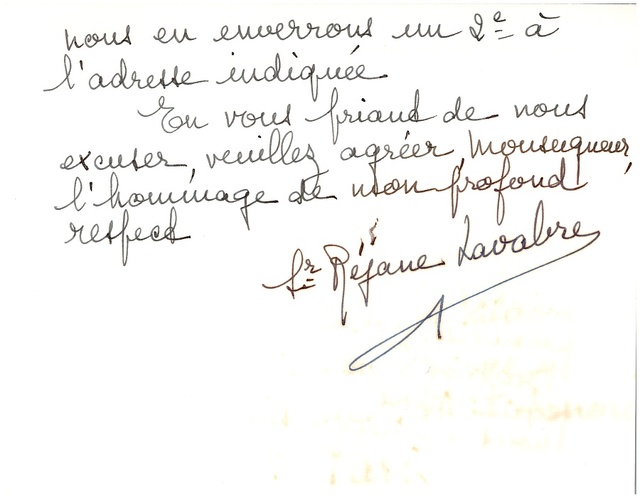 nous en enverrons un 2e à
l'adresse indiquée
En vous priant de nous
excuser, veuillez agréer, Monseigneur,
l'hommage de mon profond
respect
Sr Réjane Lavabre